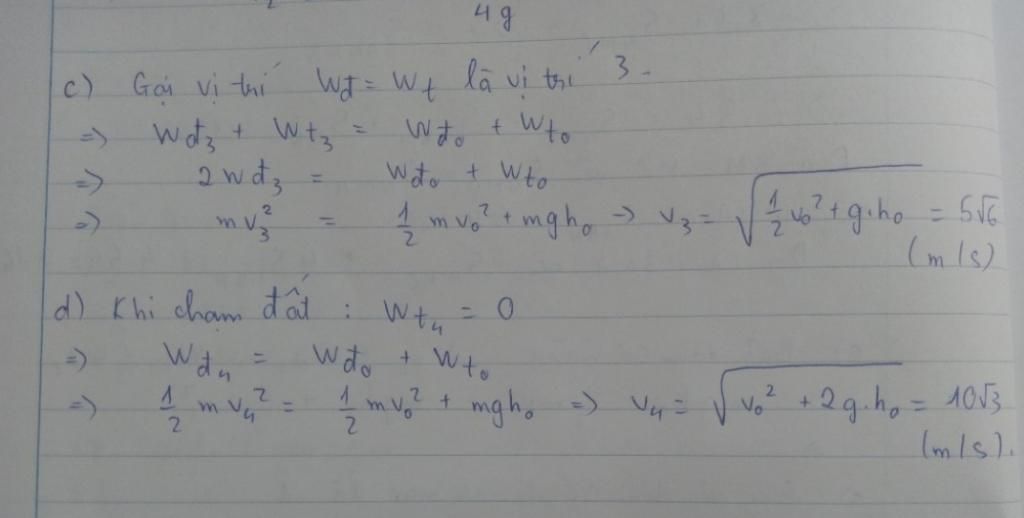 4g
c) Gọi vị trí Wđ = Wt là vị trí 3.
=> Wđ₃ + Wt₃ = Wđ₀ + Wt₀
=> 2Wđ₃ = Wđ₀ + Wt₀
=> mv₃² = 1/2 mv₀² + mgh₀ → v₃ = √(1/2 v₀² + g.h₀) = 5√6
(m/s)
d) Khi chạm đất : Wt₄ = 0
=> Wđ₄ = Wđ₀ + Wt₀
=> 1/2 mv₄² = 1/2 mv₀² + mgh₀ => v₄ = √(v₀² + 2g.h₀) = 10√3
(m/s).